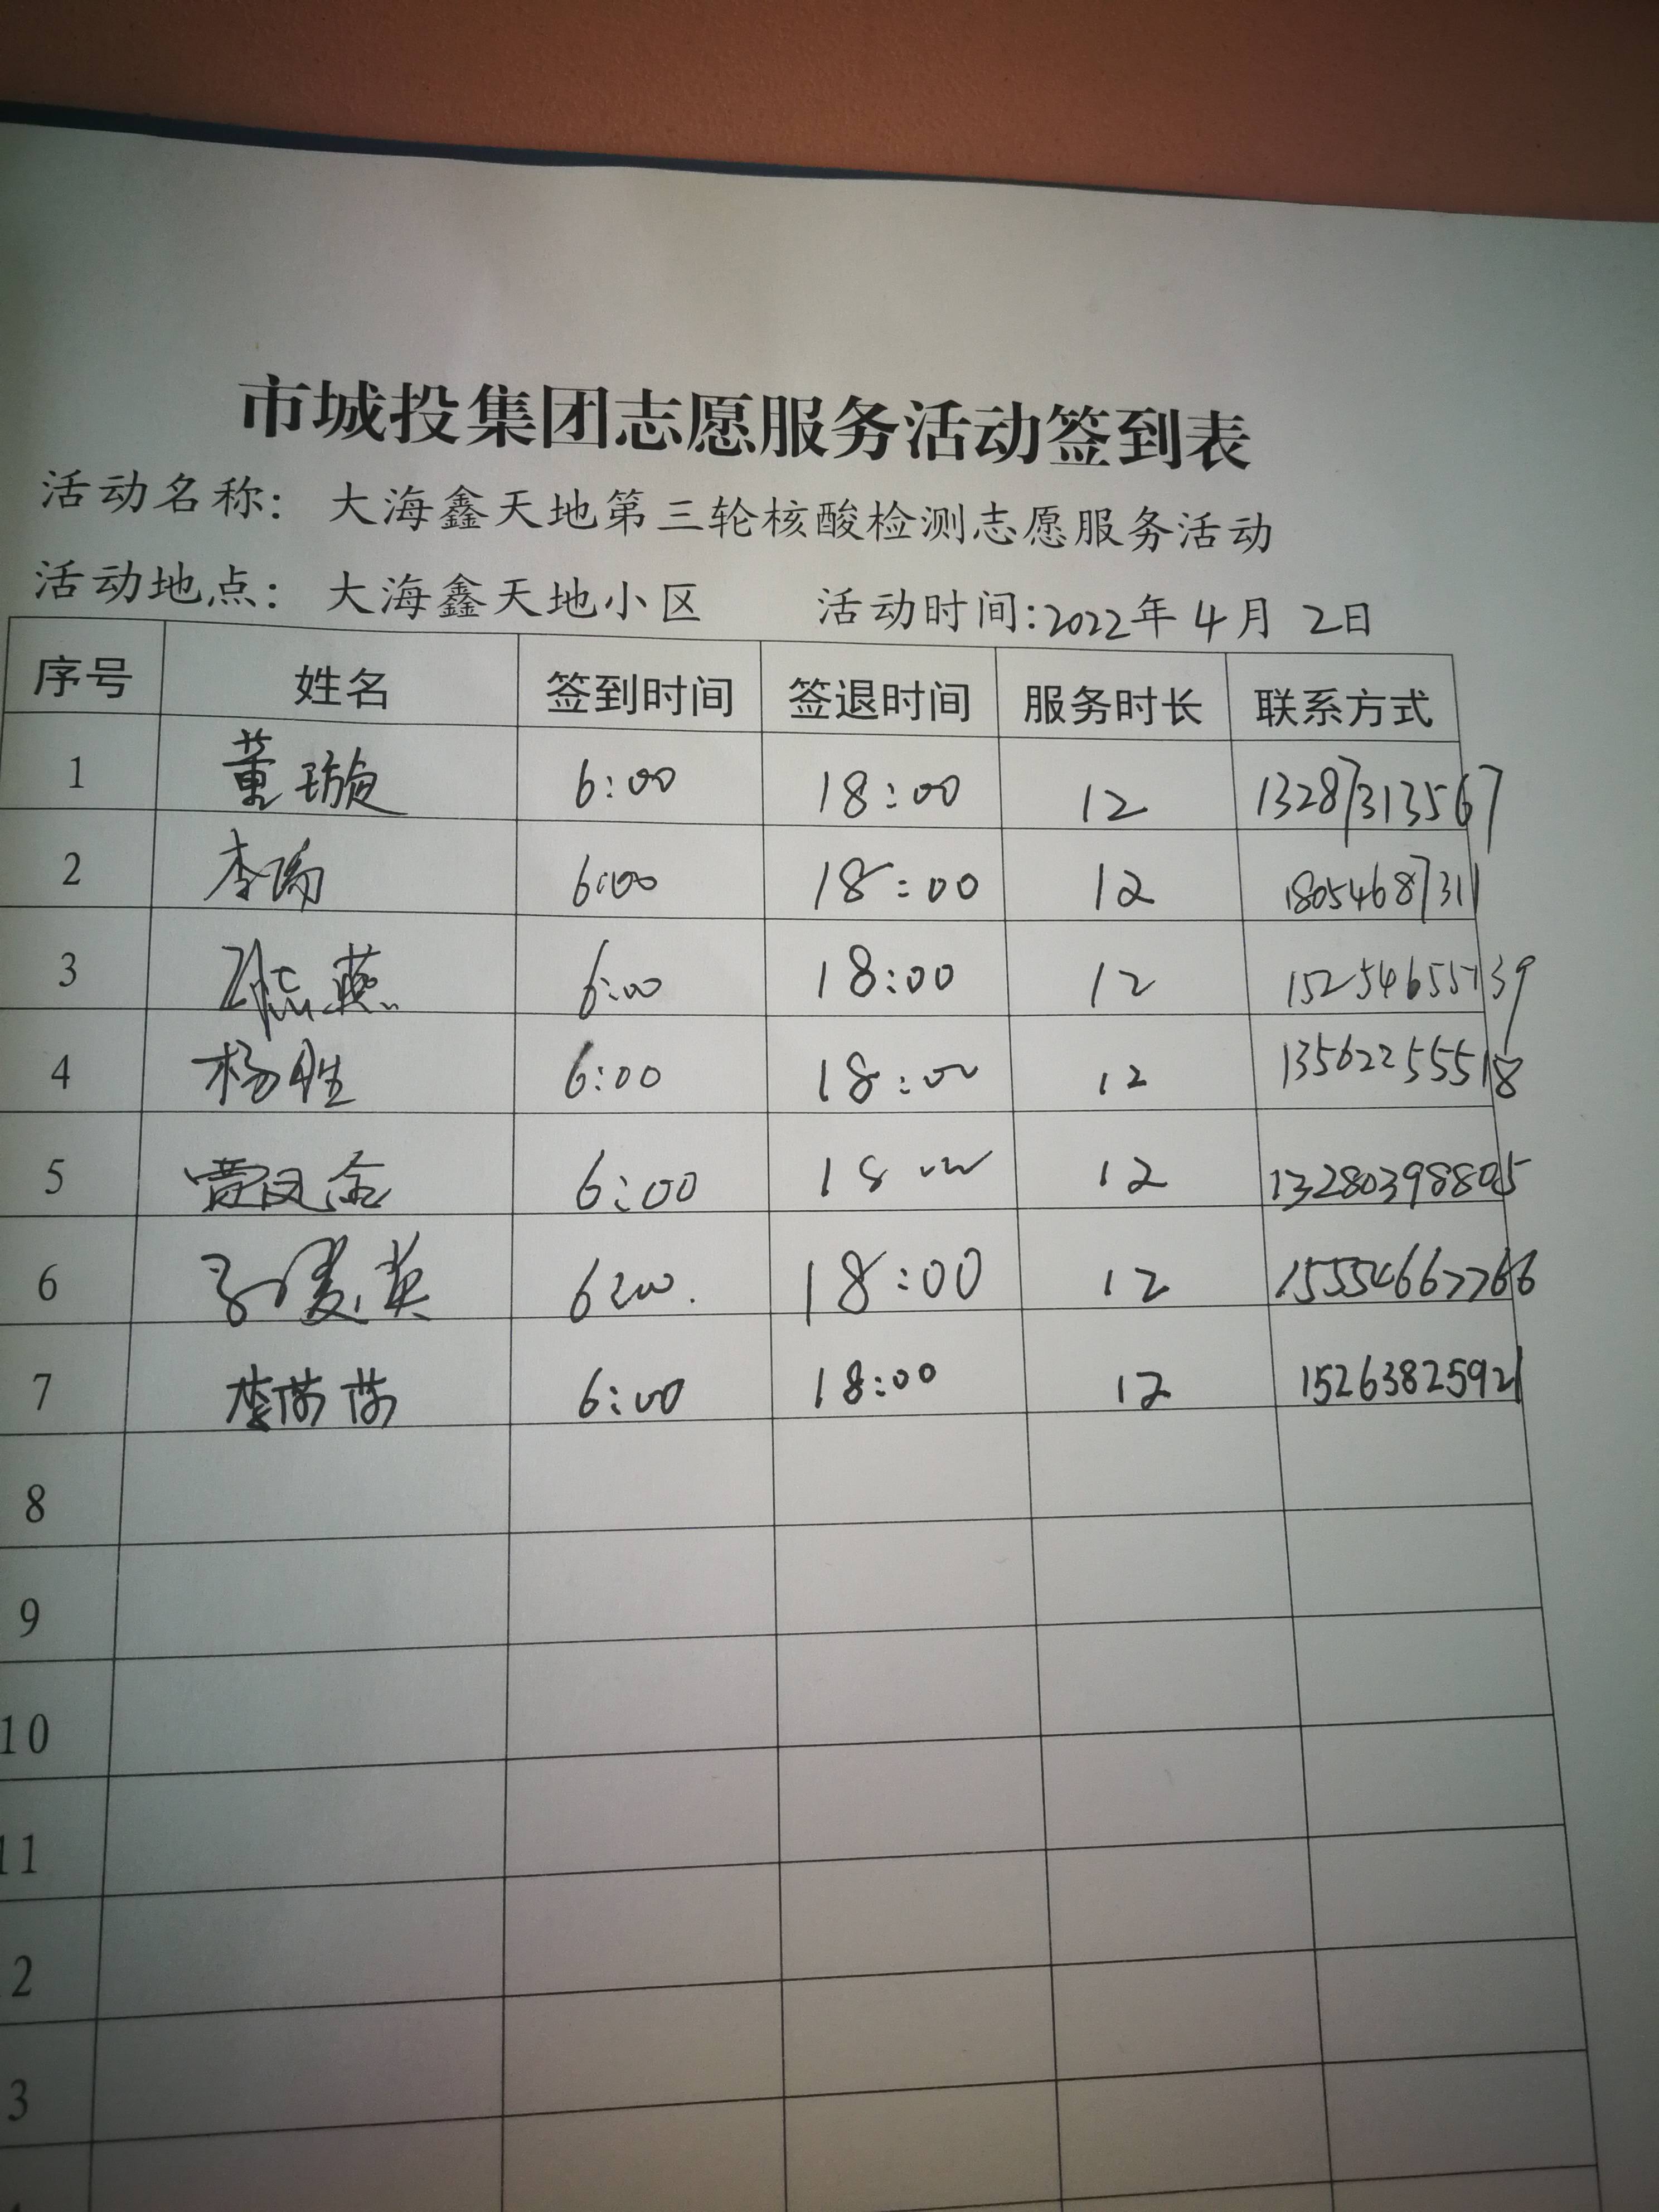 市城投集团志愿服务活动签到表
活动名称: 大海鑫天地第三轮核酸检测志愿服务活动
活动地点: 大海鑫天地小区 活动时间:2022年 4月 2日
序号 姓名 签到时间 签退时间 服务时长 联系方式
1 董璇 6:00 18:00 12 13287313567
2 李瑞 6:00 18:00 12 18054687311
3 6:00 18:00 12
4 杨胜 6:00 18:00 12 13562255518
5 贾凤金 6:00 18 00 12 13280398805
6 孙爱英 6:00. 18:00 12 15554667766
7 李茜茜 6:00 18:00 12 15263825921
8
9
10
11
2
3